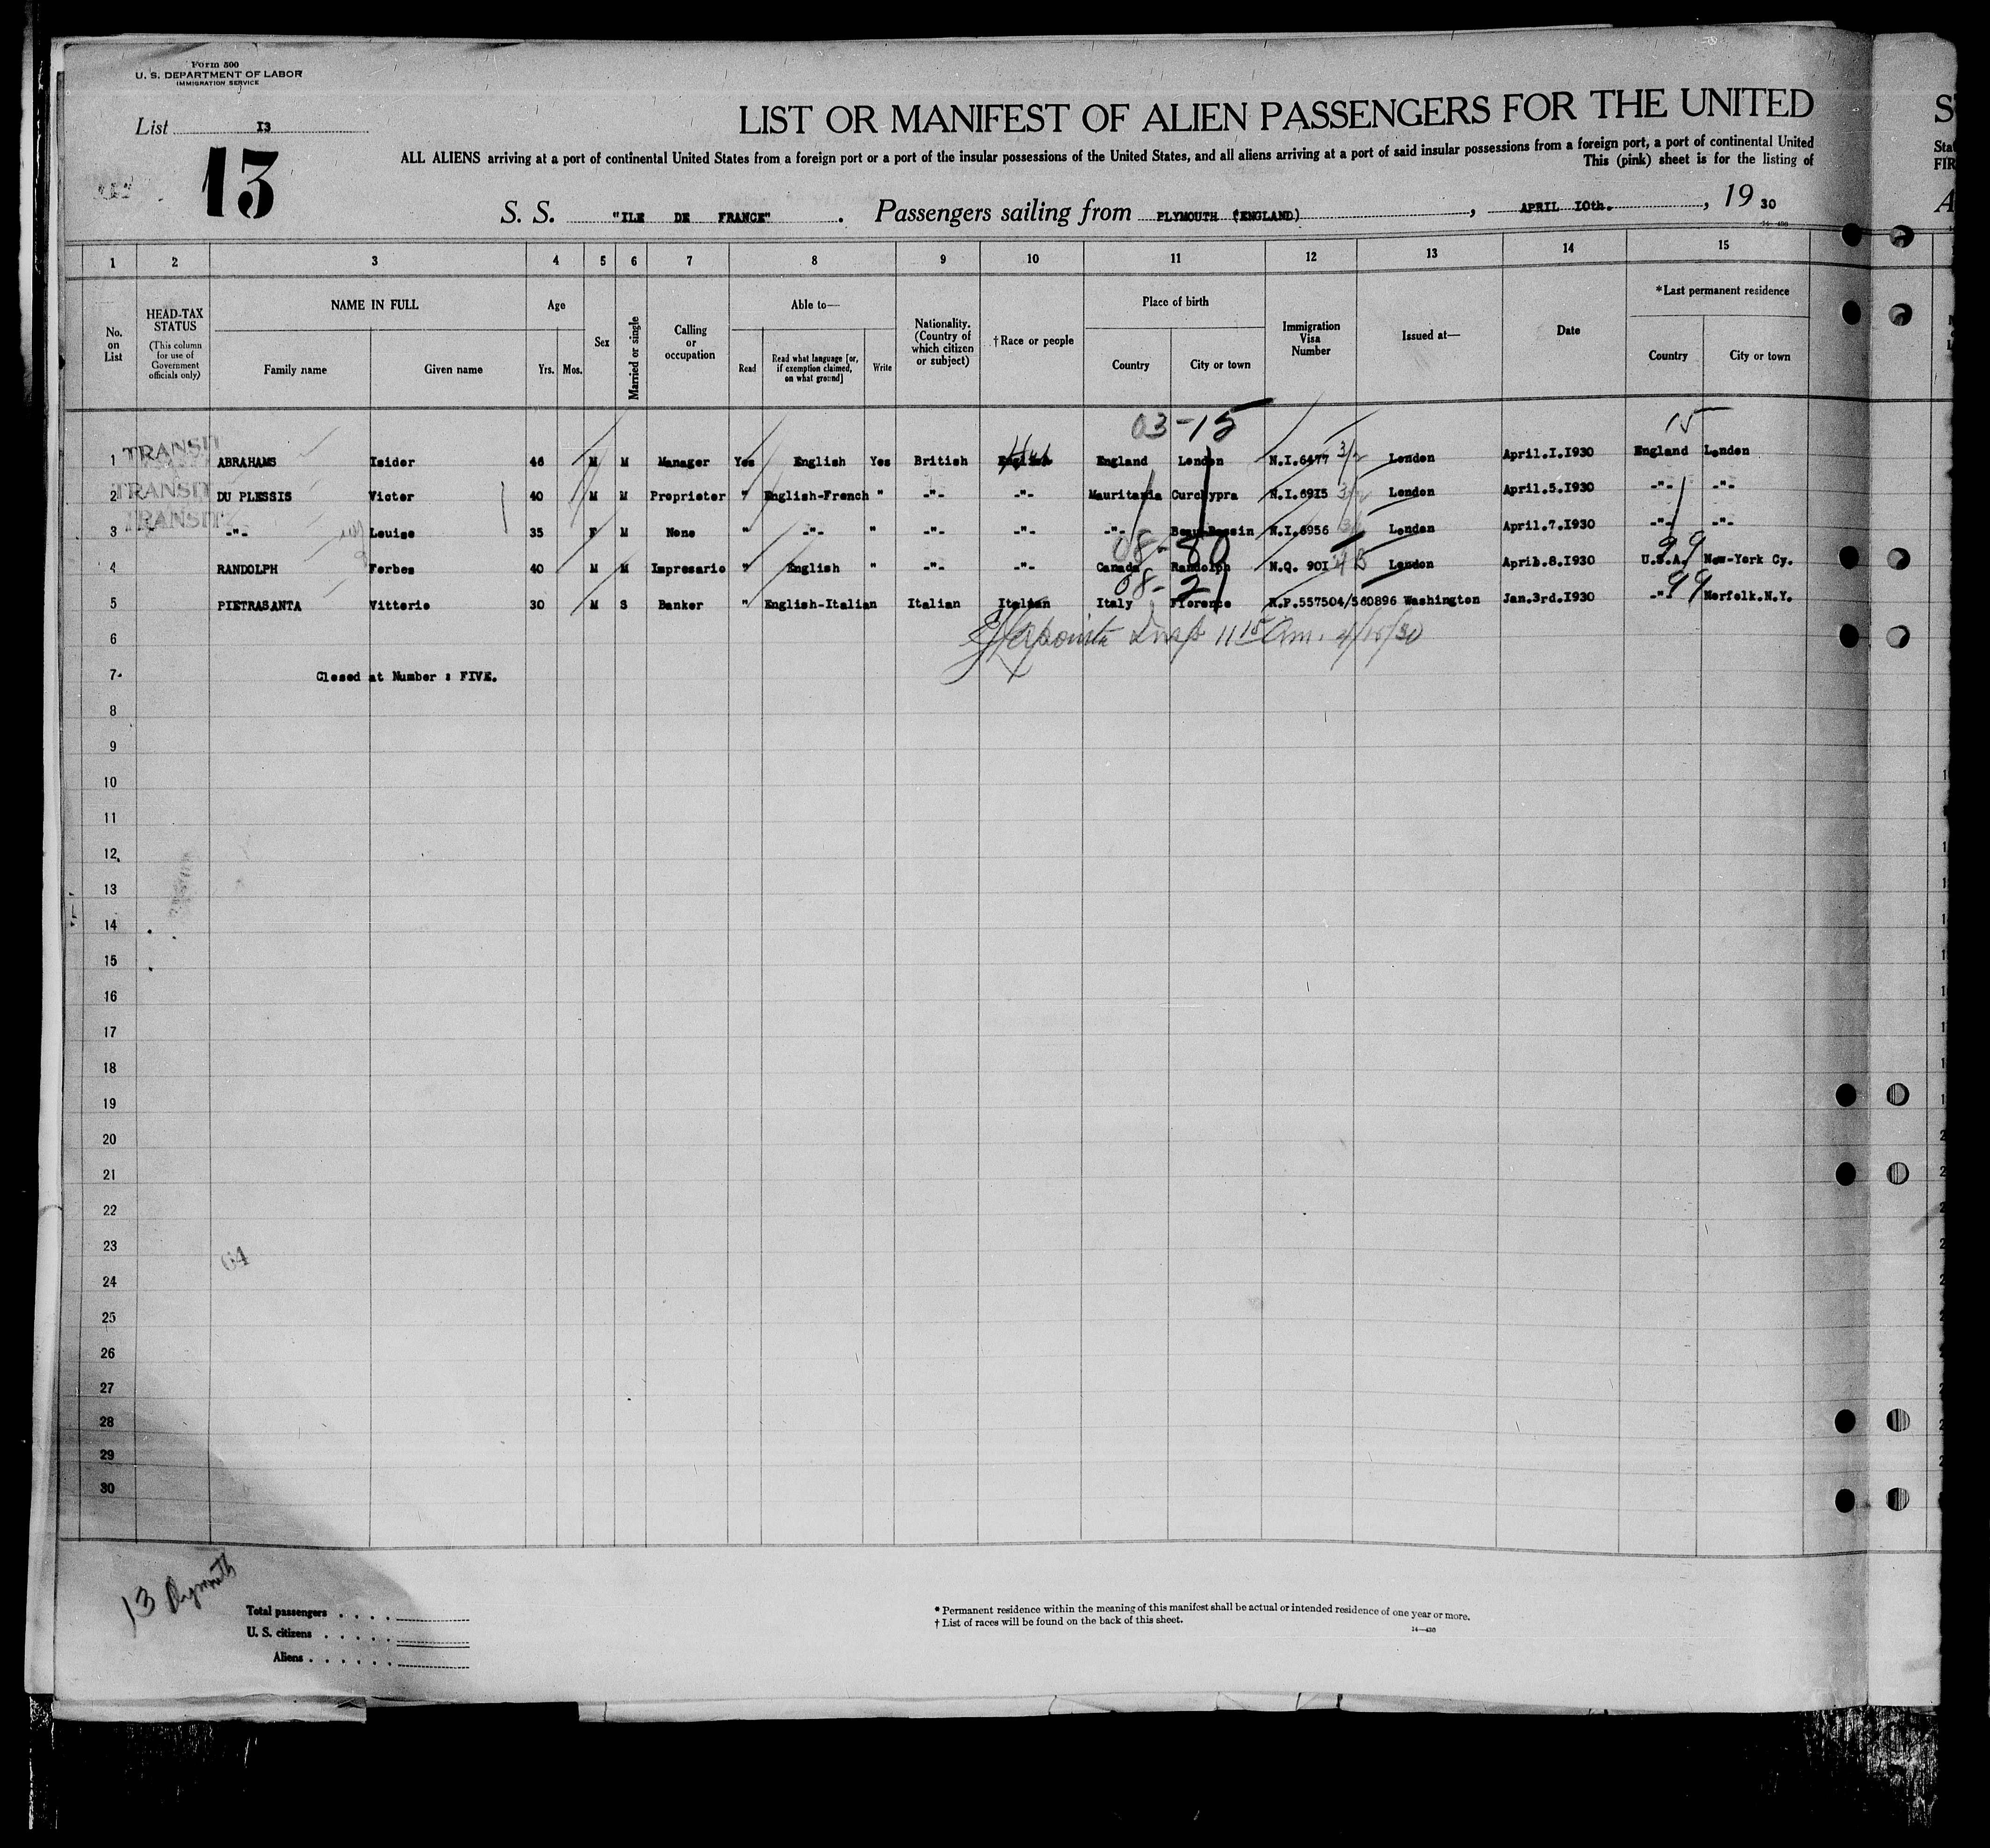 Form 500
U. S. DEPARTMENT OF LABOR
IMMIGRATION SERVICE
List 13
13
LIST OR MANIFEST OF ALIEN PASSENGERS FOR THE UNITED
ALL ALIENS arriving at a port of continental United States from a foreign port or a port of the insular possessions of the United States, and all aliens arriving at a port of said insular possessions from a foreign port, a port of continental United
This (pink) sheet is for the listing of
S. S. "ILE DE FRANCE". Passengers sailing from PLYMOUTH (ENGLAND), APRIL 10th., 1930
14-430
1 2 3 4 5 6 7 8 9 10 11 12 13 14 15
No. on List
HEAD-TAX STATUS
(This column for use of Government officials only)
NAME IN FULL
Family name Given name
Age
Yrs. Mos.
Sex
Married or single
Calling or occupation
Able to—
Read
Read what language [or, if exemption claimed, on what ground]
Write
Nationality. (Country of which citizen or subject)
†Race or people
Place of birth
Country City or town
Immigration Visa Number
Issued at—
Date
*Last permanent residence
Country City or town
03-15 15
1 TRANSIT ABRAHAMS Isider 46 M M Manager Yes English Yes British England London N.I.6477 3/2 London April.1.1930 England London
2 TRANSIT DU PLESSIS Victor 40 M M Proprieter " English-French " -"- -"- Mauritania Curchypra N.I.6915 3/2 London April.5.1930 -"- -"-
3 TRANSIT -"- Louise 35 F M None " -"- " -"- -"- -"- Beau-Bassin N.I.6956 London April.7.1930 -"- -"-
08-80 99
4 RANDOLPH Forbes 40 M M Impresario " English " -"- -"- Canada Randolph N.Q. 901 London April.8.1930 U.S.A. New-York Cy.
08-21 99
5 PIETRASANTA Vitterio 30 M S Banker " English-Italian Italian Italian Italy Florence R.P.557504/560896 Washington Jan.3rd.1930 -"- Norfolk.N.Y.
6 Insp 11 15 Am. 4/16/30
7 Closed at Number : FIVE.
8
9
10
11
12
13
14
15
16
17
18
19
20
21
22
23
64
24
25
26
27
28
29
30
13 Plymouth
Total passengers . . . .
U. S. citizens . . . . .
Aliens . . . . . .
* Permanent residence within the meaning of this manifest shall be actual or intended residence of one year or more.
† List of races will be found on the back of this sheet.
14—430